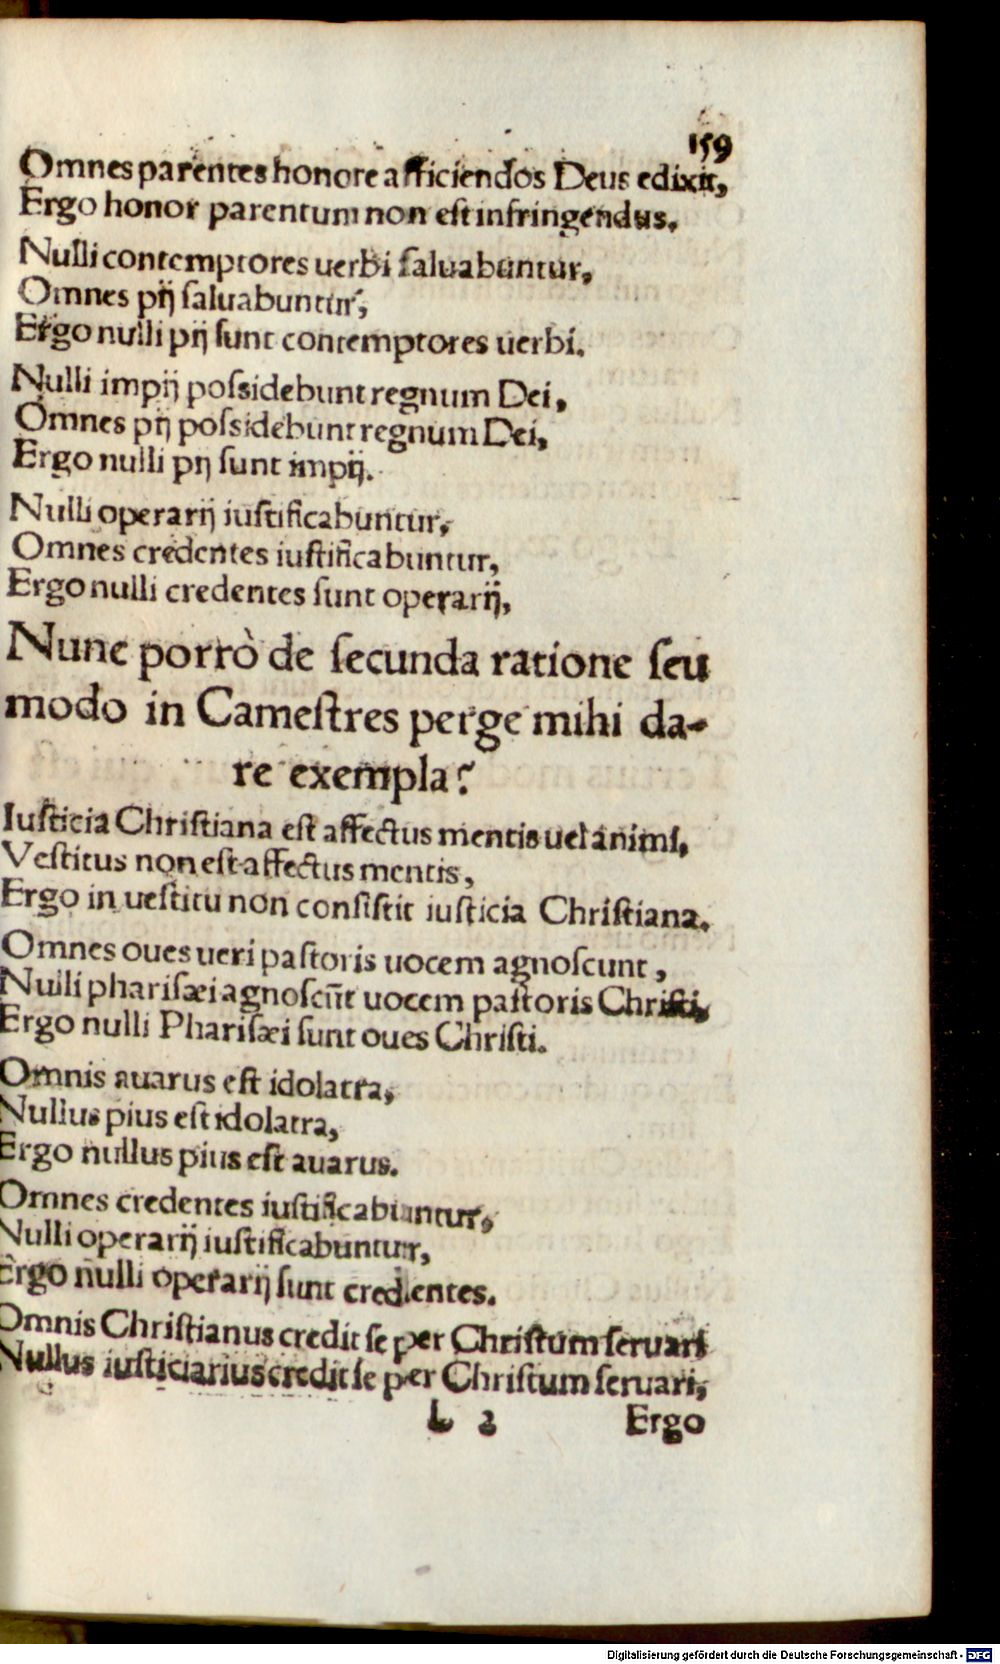 159
Omnes parentes honore afficiendos Deus edixit,
Ergo honor parentum non est infringendus.
Nulli contemptores uerbi saluabuntur,
Omnes pij saluabuntur,
Ergo nulli pij sunt contemptores uerbi.
Nulli impij possidebunt regnum Dei,
Omnes pij possidebunt regnum Dei,
Ergo nulli pij sunt impij.
Nulli operarij iustificabuntur,
Omnes credentes iustificabuntur,
Ergo nulli credentes sunt operarij,
Nunc porrò de secunda ratione seu
modo in Camestres perge mihi da-
re exempla?
Iusticia Christiana est affectus mentis uel animi,
Vestitus non est affectus mentis,
Ergo in uestitu non consistit iusticia Christiana.
Omnes oues ueri pastoris uocem agnoscunt,
Nulli pharisæi agnoscūt uocem pastoris Christi,
Ergo nulli Pharisæi sunt oues Christi.
Omnis auarus est idolatra,
Nullus pius est idolatra,
Ergo nullus pius est auarus.
Omnes credentes iustificabuntur,
Nulli operarij iustificabuntur,
Ergo nulli operarij sunt credentes.
Omnis Christianus credit se per Christum seruari
Nullus iusticiarius credit se per Christum seruari,
L 2 Ergo
Digitalisierung gefördert durch die Deutsche Forschungsgemeinschaft - DFG